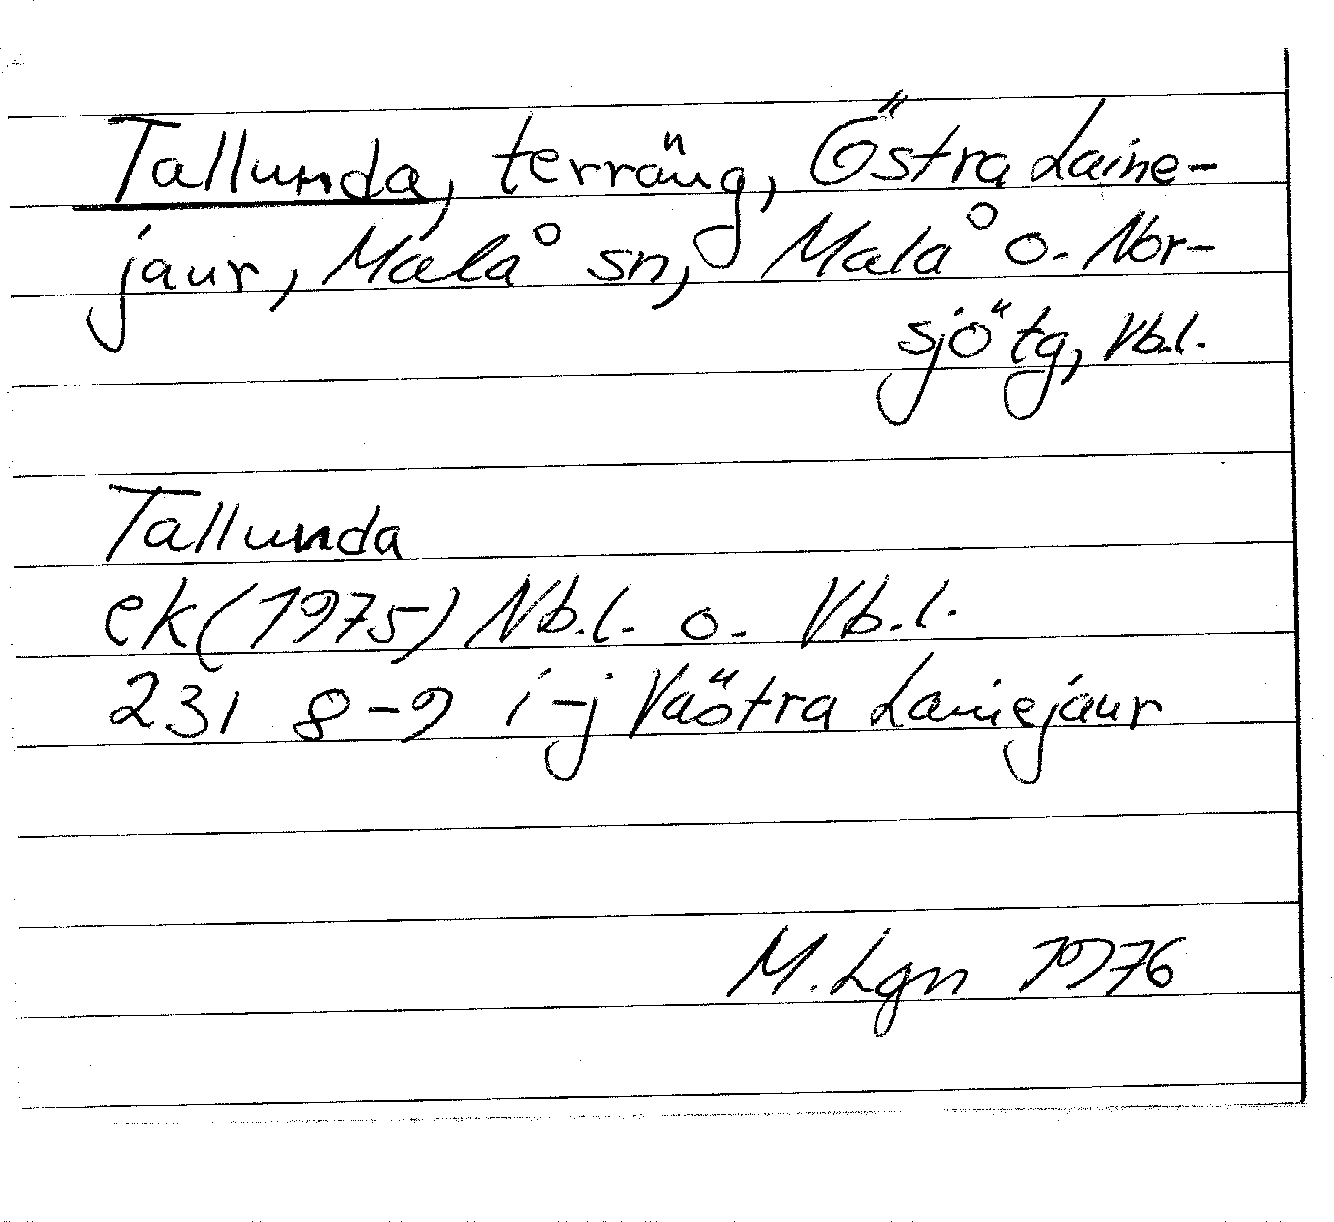 Tallunda, terräng, Östra Laine-
jaur, Malå sn, Malå o. Nor-
sjö tg, Vb.l.
Tallunda
ek(1975) Nb.l. o. Vb.l.
231 8-9 i-j Västra Lainejaur
M. Lgn 1976